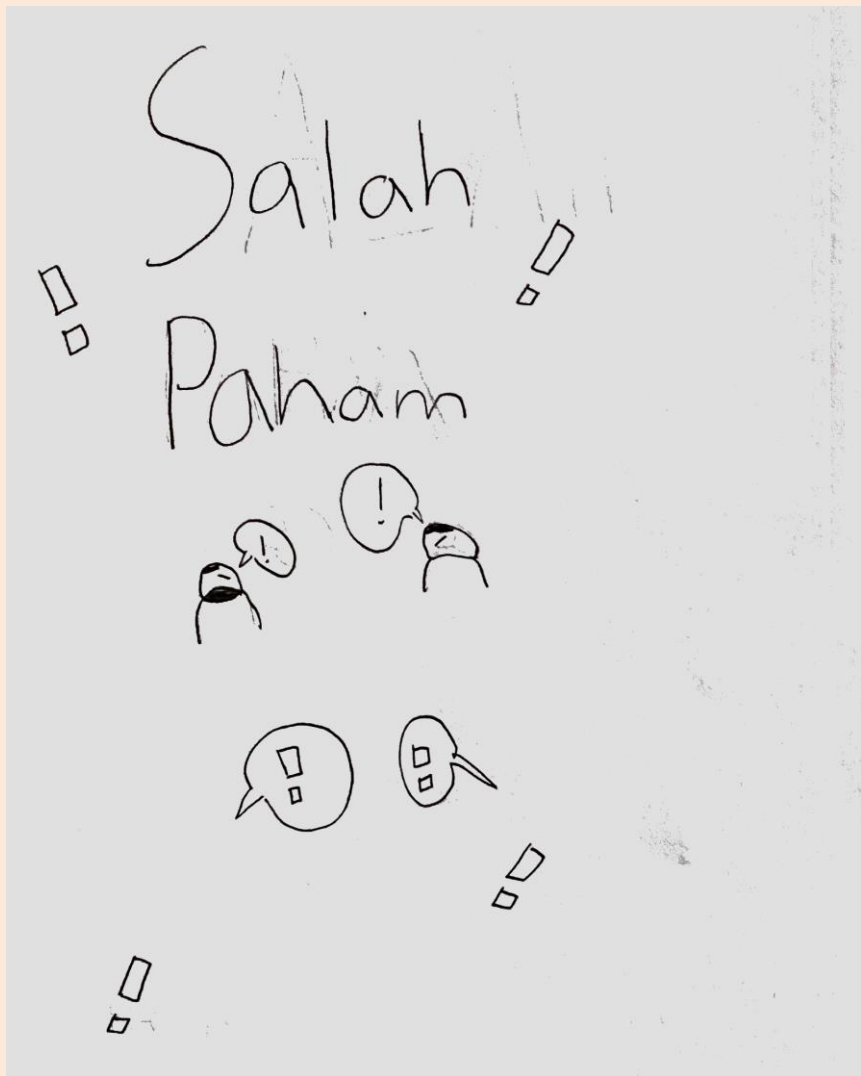 Salah
!
!
Paham
!
!
!
!
!
!